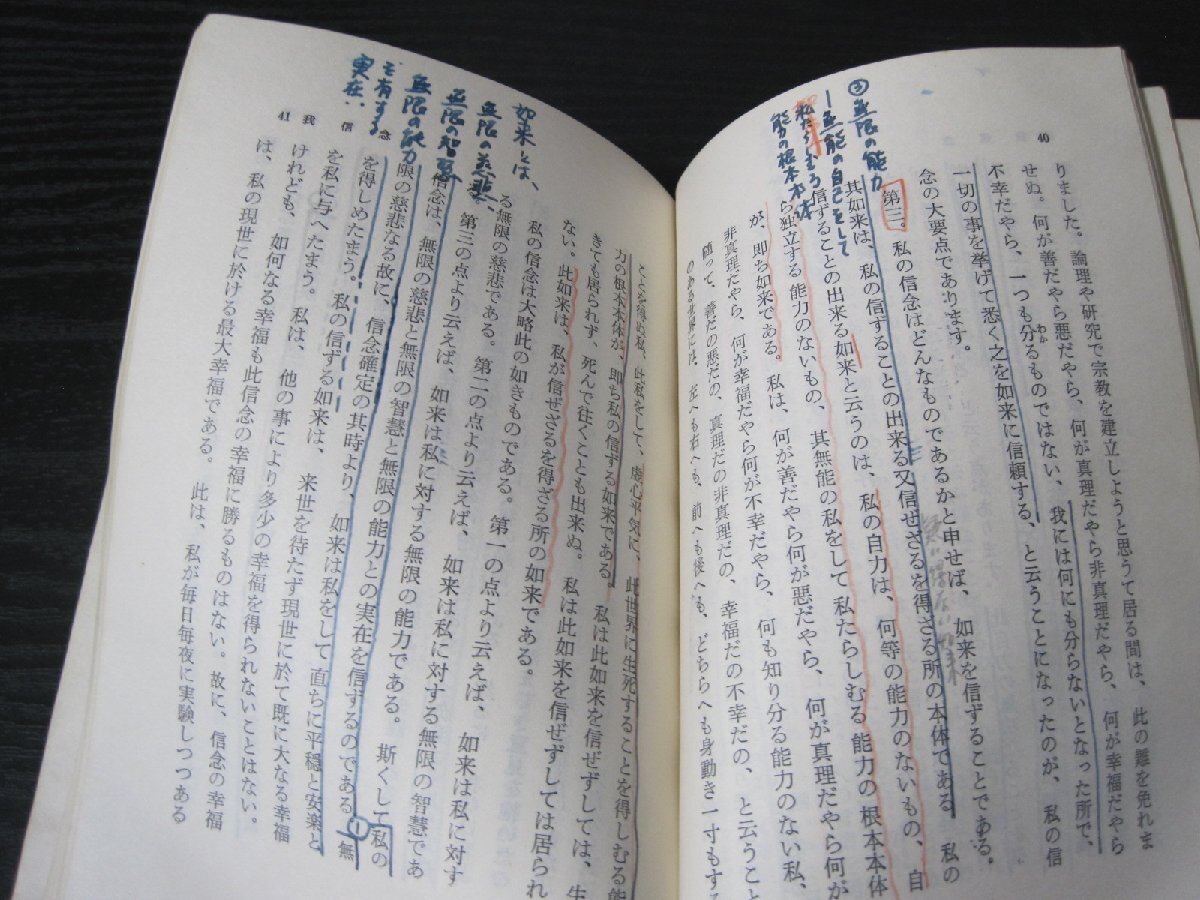 40
りました。論理や研究で宗教を建立しようと思うて居る間は、此の難を免れま
せぬ。何が善だやら悪だやら、何が真理だやら非真理だやら、何が幸福だやら
不幸だやら、一つも分るものではない、我には何にも分らないとなった所で、
一切の事を挙げて悉く之を如来に信頼する、と云うことになったのが、私の信
念の大要点であります。
第三。私の信念はどんなものであるかと申せば、如来を信ずることである。
其如来は、私の信ずることの出来る又信ぜざるを得ざる所の本体である。私の
信ずることの出来る如来と云うのは、私の自力は、何等の能力のないもの、自
ら独立する能力のないもの、其無能の私をして私たらしむる能力の根本本体
が、即ち如来である。私は、何が善だやら何が悪だやら、何が真理だやら何が
非真理だやら、何が幸福だやら何が不幸だやら、何も知り分る能力のない私、
随って、善だの悪だの、真理だの非真理だの、幸福だの不幸だの、と云うこと
のある世界には、左へも右へも、前へも後へも、どちらへも身動き一寸もする
③無限の能力
ー無能の自己をして
私たらしむる
能力の根本本体
41 我 信 念
ことを得ぬ私、此私をして、虚心平気に、此世界に生死することを得しむる能
力の根本本体が、即ち私の信ずる如来である。私は此如来を信ぜずしては、生
きても居られず、死んで往くことも出来ぬ。私は此如来を信ぜずしては居られ
ない。此如来は、私が信ぜざるを得ざる所の如来である。
私の信念は大略此の如きものである。第一の点より云えば、如来は私に対す
る無限の慈悲である。第二の点より云えば、如来は私に対する無限の智慧であ
る。第三の点より云えば、如来は私に対する無限の能力である。斯くして私の
信念は、無限の慈悲と無限の智慧と無限の能力との実在を信ずるのである。無
限の慈悲なる故に、信念確定の其時より、如来は私をして直ちに平穏と安楽と
を得しめたまう。私の信ずる如来は、来世を待たず現世に於て既に大なる幸福
を私に与へたまう。私は、他の事により多少の幸福を得られないことはない。
けれども、如何なる幸福も此信念の幸福に勝るものはない。故に、信念の幸福
は、私の現世に於ける最大幸福である。此は、私が毎日毎夜に実験しつつある
如来とは、
無限の慈悲
無限の智慧
無限の能力
を有する
実在。
①